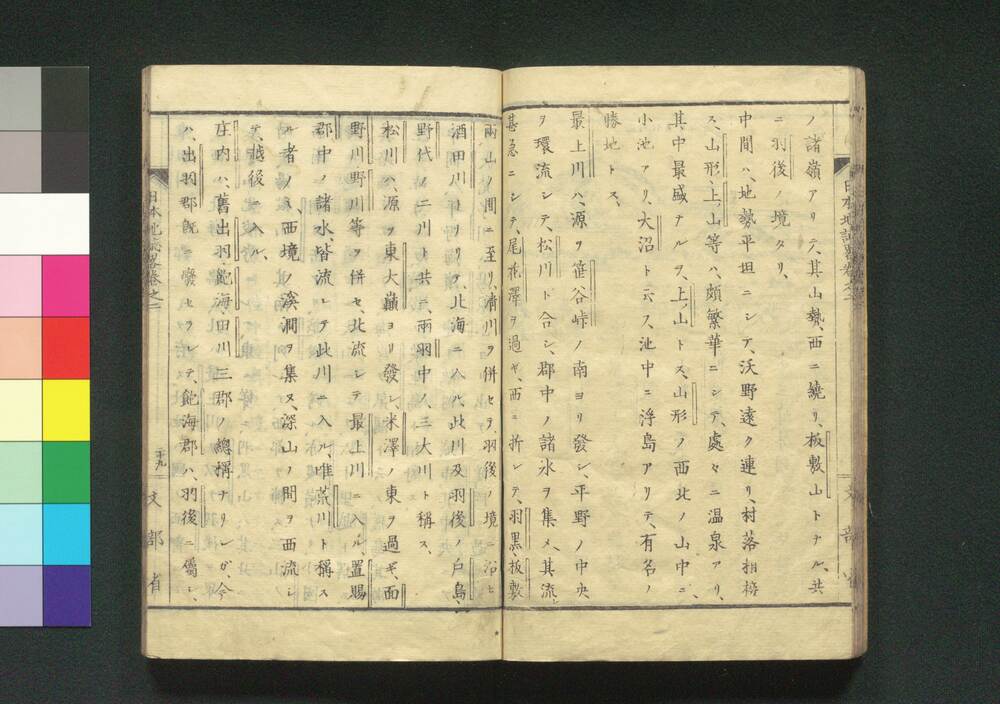 ノ諸嶺アリテ、其山勢、西ニ繞リ、板敷山トナル、共
ニ羽後ノ境タリ、
中間ハ、地勢平坦ニシテ、沃野遠ク連リ、村落相接
ス、山形、上ノ山等ハ、頗繁華ニシテ、處々ニ温泉アリ、
其中最盛ナルヲ、上ノ山トス、山形ノ西北ノ山中ニ、
小池アリ、大沼ト云フ、池中ニ浮島アリテ、有名ノ
勝地トス、
最上川ハ、源ヲ笹谷峠ノ南ヨリ發シ、平野ノ中央
ヲ環流シテ、松川ト合シ、郡中ノ諸水ヲ集メ、其流
甚急ニシテ、尾花澤ヲ過ギ、西ニ折レテ、羽黒、板敷
兩山ノ間ニ至リ、清川ヲ併セ、羽後ノ境ニ沿ヒ
酒田川トナリテ、北海ニ入ル、此川及羽後ノ戸島、
野代ノ二川ト共ニ、兩羽中ノ三大川ト稱ス、
松川ハ、源ヲ東大巓ヨリ發シ、米澤ノ東ヲ過ギ、面
野川野川等ヲ併セ、北流シテ最上川ニ入ル、置賜
郡中ノ諸水、皆流レテ此川ニ入ル、唯荒川ト稱ス
ル者ノミ、西境ノ溪澗ヲ集メ、深山ノ間ヲ西流シ
テ、越後ニ入ル、
庄内ハ、舊出羽、飽海、田川三郡ノ總稱ナリシガ、今
ハ、出羽郡既ニ變セラレテ、飽海郡ハ、羽後ニ屬シ、
日本地誌畧卷之二
二十九
文部省